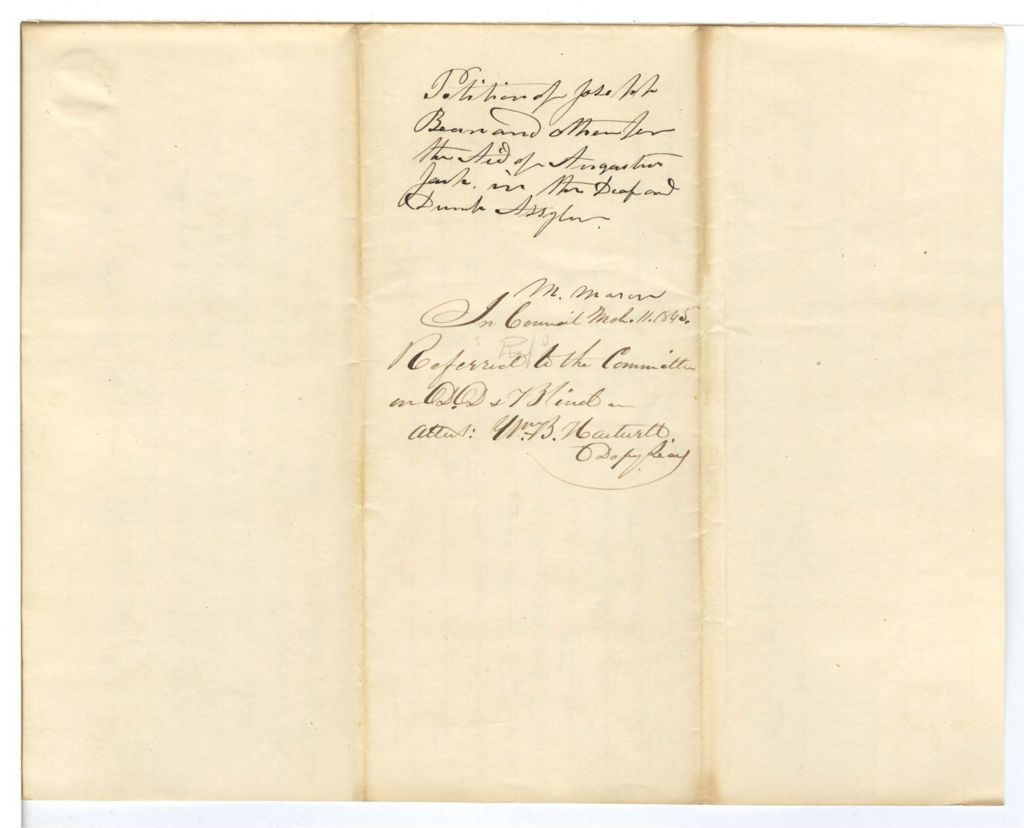 Petition of Joseph
Bean and others for
the Aid of Augustus
Jack. in the Deaf and
Dumb Assylum.
M. Mason
In Council Mch. 11. 1845.
Refd
Referred to the Committee
on D. D & Blind
attest: Wm. B. Hartwell
Depy Secy